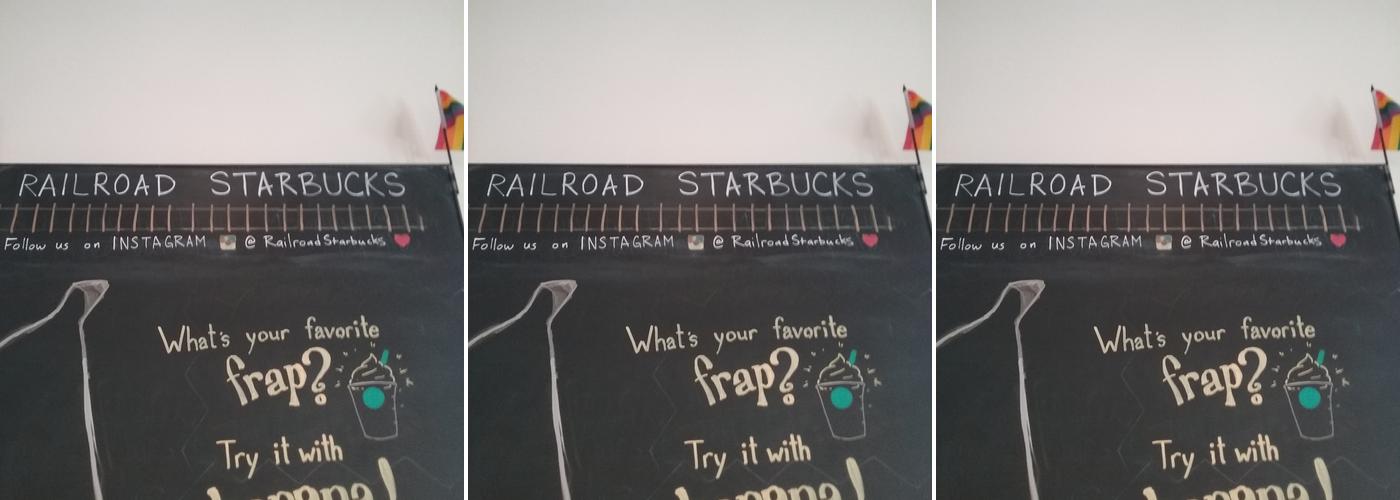 RAILROAD STARBUCKS
Follow us on INSTAGRAM @RailroadStarbucks
What's your favorite
frap?
Try it with
RAILROAD STARBUCKS
Follow us on INSTAGRAM @RailroadStarbucks
What's your favorite
frap?
Try it with
RAILROAD STARBUCKS
Follow us on INSTAGRAM @RailroadStarbucks
What's your favorite
frap?
Try it with